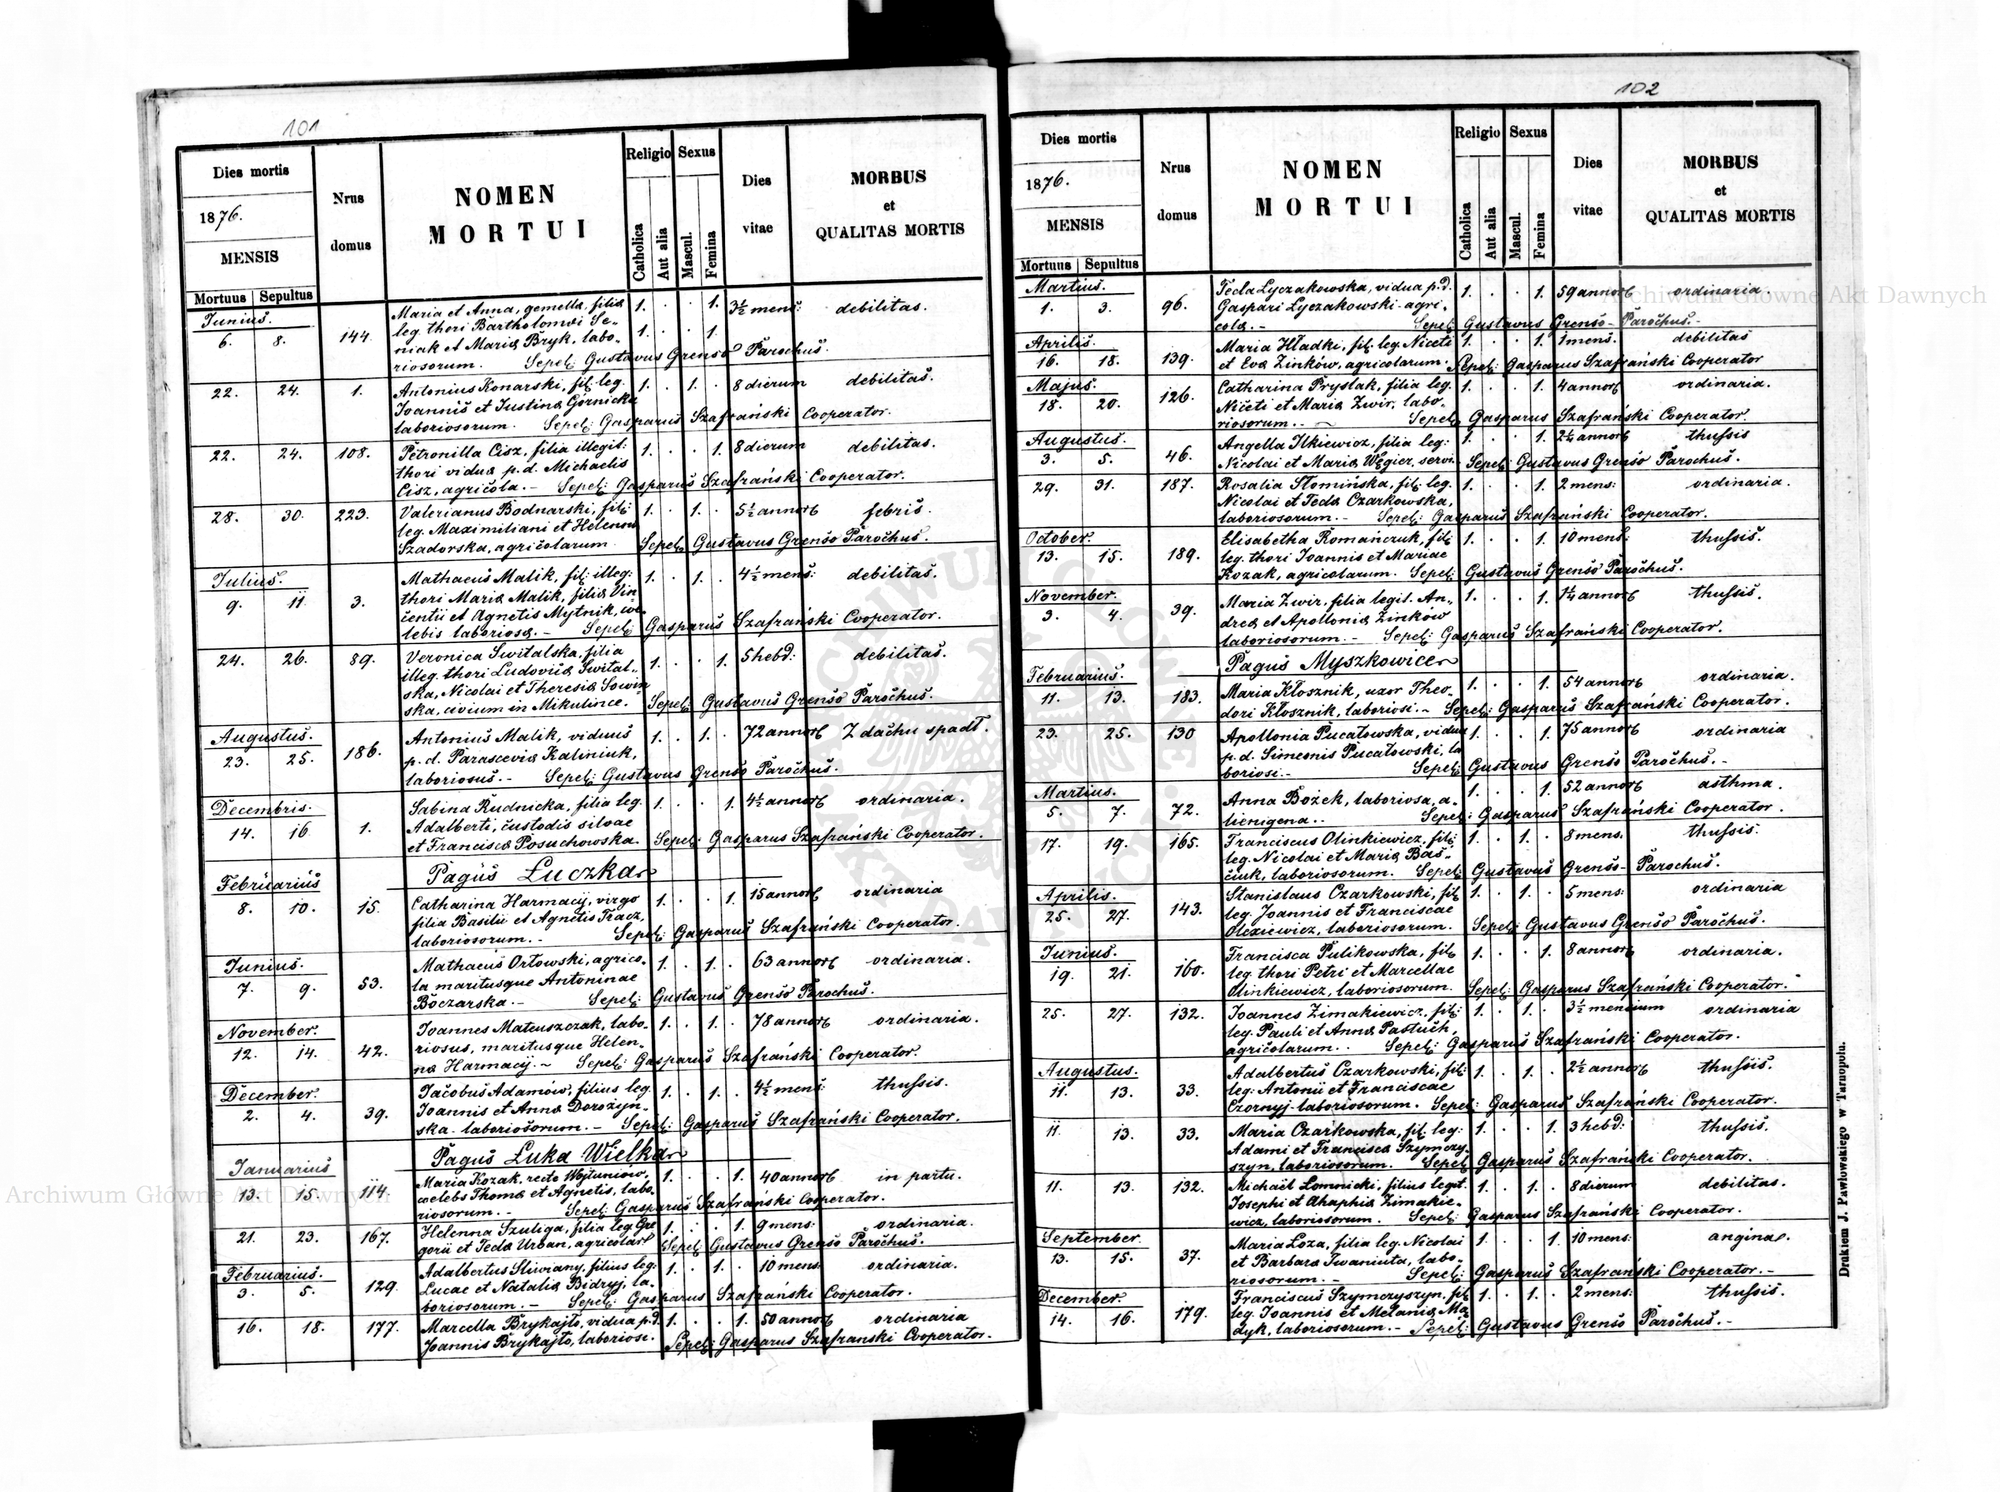 101
Dies mortis
1876.
MENSIS
Mortuus Sepultus
Nrus domus
NOMEN
MORTUI
Religio Sexus
Catholica Aut alia Mascul. Femina
Dies vitae
MORBUS
et
QUALITAS MORTIS
Junius.
6. 8. 144. Maria et Anna, gemellæ, filiæ 1. . . 1. 3½ mens: debilitas.
leg. thori Bartholomæi Se- 1. . . 1.
niak et Mariæ Bryk, labo-
riosorum. Sepel: Gustavus Grenso Parochus.
22. 24. 1. Antonius Konarski, fil. leg. 1. . 1. . 8 dierum debilitas.
Joannis et Justinæ Górnicka
laboriosorum. Sepel: Gasparus Szafrański Cooperator.
22. 24. 108. Petronilla Cisz, filia illegit: 1. . . 1. 8 dierum debilitas.
thori viduæ p. d. Michaelis
Cisz, agricola. - Sepel: Gasparus Szafrański Cooperator.
28. 30. 223. Valerianus Bodnarski, fil: 1. . 1. . 5½ annorb febris.
leg. Maximiliani et Helenæ
Szadorska, agricolarum. Sepel: Gustavus Grenso Parochus.
Julius.
9. 11. 3. Mathaeus Malik, fil: illeg: 1. . 1. . 4½ mens: debilitas.
thori Mariæ Malik, filiæ Vin-
centii et Agnetis Mytnik, cæ-
lebis laboriosæ. - Sepel: Gasparus Szafrański Cooperator.
24. 26. 89. Veronica Switalska, filia 1. . . 1. 5 hebd: debilitas.
illeg. thori Ludovicæ Swital-
ska, Nicolai et Theresiæ Sowin
ska, civium in Mikulince. Sepel: Gustavus Grenso Parochus.
Augustus.
23. 25. 186. Antonius Malik, viduus 1. . 1. . 72 annorb Z dachu spadł.
p. d. Parasceviæ Kaliniuk,
laboriosus. - Sepel: Gustavus Grenso Parochus.
Decembris.
14. 16. 1. Sabina Rudnicka, filia leg. 1. . . 1. 4½ annorb ordinaria.
Adalberti, custodis silvae
et Franciscæ Posuchowska. Sepel: Gasparus Szafrański Cooperator.
Pagus Luczka
Februarius
8. 10. 15. Catharina Harmacij, virgo 1. . . 1. 15 annorb ordinaria
filia Basilii et Agnetis Tracz,
laboriosorum. - Sepel: Gasparus Szafrański Cooperator.
Junius.
7. 9. 53. Mathaeus Orłowski, agrico- 1. . 1. . 63 annorb ordinaria.
la maritusque Antoninae
Boczarska. - Sepel: Gustavus Grenso Parochus.
November.
12. 14. 42. Joannes Mateuszczak, labo- 1. . 1. . 78 annorb ordinaria.
riosus, maritusque Helen-
næ Harmacij. - Sepel: Gasparus Szafrański Cooperator.
December.
2. 4. 39. Jacobus Adamów, filius leg. 1. . 1. . 4½ mens: thussis.
Joannis et Annæ Dorożyn-
ska laboriosorum. - Sepel: Gasparus Szafrański Cooperator.
Pagus Łuka Wielka
Januarius
13. 15. 114. Maria Kozak, recte Wojtuniów, 1. . . 1. 40 annorb in partu.
caelebs Thomæ et Agnetis, labo-
riosorum. - Sepel: Gasparus Szafrański Cooperator.
21. 23. 167. Helenna Szuliga, filia leg. Gre 1. . . 1. 9 mens: ordinaria.
gorii et Teclæ Urban, agricolarb Sepel: Gustavus Grenso Parochus.
Februarius.
3. 5. 129. Adalbertus Sliwiany, filius leg: 1. . 1. . 10 mens: ordinaria.
Lucae et Nataliæ Bidryj, la-
boriosorum. - Sepel: Gasparus Szafrański Cooperator.
16. 18. 177. Marcella Brykajło, vidua p. d. 1. . . 1. 50 annorb ordinaria
Joannis Brykajło, laboriosi. Sepel: Gasparus Szafranski Cooperator.
102
Dies mortis
1876.
MENSIS
Mortuus Sepultus
Nrus domus
NOMEN
MORTUI
Religio Sexus
Catholica Aut alia Mascul. Femina
Dies vitae
MORBUS
et
QUALITAS MORTIS
Martius.
1. 3. 96. Tecla Lyczakowska, vidua p. d. 1. . . 1. 59 annorb ordinaria.
Gaspari Lyczakowski agri-
colæ. - Sepel: Gustavus Grenso - Parochus. -
Aprilis.
16. 18. 139. Maria Hładki, fil: leg. Niceti 1. . . 1. 1 mens. debilitas
et Evæ Zinków, agricolarum. Sepel: Gasparus Szafrański Cooperator
Majus.
18. 20. 126. Catharina Prystak, filia leg. 1. . . 1. 4 annorb ordinaria.
Niceti et Mariæ Zwir, labo-
riosorum. - Sepel: Gasparus Szafrański Cooperator.
Augustus.
3. 5. 46. Angella Ilkiewicz, filia leg: 1. . . 1. 2¼ annorb thussis
Nicolai et Mariæ Węgier, servi- Sepel: Gustavus Grenso Parochus.
29. 31. 187. Rosalia Słomińska, fil: leg. 1. . . 1. 2 mens: ordinaria.
Nicolai et Teclæ Czarkowska,
laboriosorum. - Sepel: Gasparus Szafrański Cooperator.
October.
13. 15. 189. Elisabetha Romańczuk, fil: 1. . . 1. 10 mens: thussis.
leg. thori Joannis et Mariae
Kozak, agricolarum. Sepel: Gustavus Grenso Parochus.
November.
3. 4. 39. Maria Zwir, filia legit. An- 1. . . 1. 1¼ annorb thussis.
dreæ et Apolloniæ Zinków
laboriosorum. - Sepel: Gasparus Szafrański Cooperator.
Pagus Myszkowice
Februarius.
11. 13. 183. Maria Kłosznik, uxor Theo- 1. . . 1. 54 annorb ordinaria.
dori Kłosznik, laboriosi. - Sepel: Gasparus Szafrański Cooperator.
23. 25. 130 Apollonia Pucałowska, vidua 1. . . 1. 75 annorb ordinaria
p. d. Simeonis Pucałowski, la
boriosi. - Sepel: Gustavus Grenso Parochus. -
Martius.
5. 7. 72. Anna Bożek, laboriosa, a- 1. . . 1. 52 annorb asthma.
lienigena. Sepel: Gasparus Szafrański Cooperator.
17. 19. 165. Franciscus Olinkiewicz, fil: 1. . 1. . 8 mens: thussis.
leg. Nicolai et Mariæ Bas-
ciuk, laboriosorum. Sepel: Gustavus Grenso - Parochus.
Aprilis.
25. 27. 143. Stanislaus Czarkowski, fil: 1. . 1. . 5 mens: ordinaria
leg. Joannis et Franciscae
Olexiewicz, laboriosorum. Sepel: Gustavus Grenso Parochus.
Junius.
19. 21. 160. Francisca Pulikowska, fil: 1. . . 1. 8 annorb ordinaria.
leg. thori Petri et Marcellae
Olinkiewicz, laboriosorum. Sepel: Gasparus Szafrański Cooperator.
25. 27. 132. Joannes Zimakiewicz, fil: 1. . 1. . 3½ mensium ordinaria
leg. Pauli et Annæ Pastuch,
agricolarum. Sepel: Gasparus Szafrański Cooperator.
Augustus.
11. 13. 33. Adalbertus Czarkowski, fil: 1. . 1. . 2½ annorb thussis.
leg: Antonii et Franciscae
Czornyj laboriosorum. Sepel: Gasparus Szafrański Cooperator.
11. 13. 33. Maria Czarkowska, fil: leg: 1. . . 1. 3 hebd: thussis.
Adami et Franciscæ Szymczy-
szyn, laboriosorum. Sepel: Gasparus Szafrański Cooperator.
11. 13. 132. Michaël Łomnicki, filius legit. 1. . 1. . 8 dierum debilitas.
Josephi et Ahaphiæ Zimakie-
wicz, laboriosorum. Sepel: Gasparus Szafrański Cooperator.
September.
13. 15. 37. Maria Łoza, filia leg. Nicolai 1. . . 1. 10 mens: anginæ.
et Barbaræ Iwaniuta, labo-
riosorum. - Sepel: Gasparus Szafrański Cooperator. -
December.
14. 16. 179. Franciscus Szymczyszyn, fil: 1. . 1. . 2 mens: thussis.
leg. Joannis et Melaniæ Ma-
dyk, laboriosorum. - Sepel: Gustavus Grenso Parochus. -
Drukiem J. Pawłowskiego w Tarnopolu.
Archiwum Główne Akt Dawnych
Archiwum Główne Akt Dawnych
ARCHIWUM GŁÓWNE AKT DAWNYCH